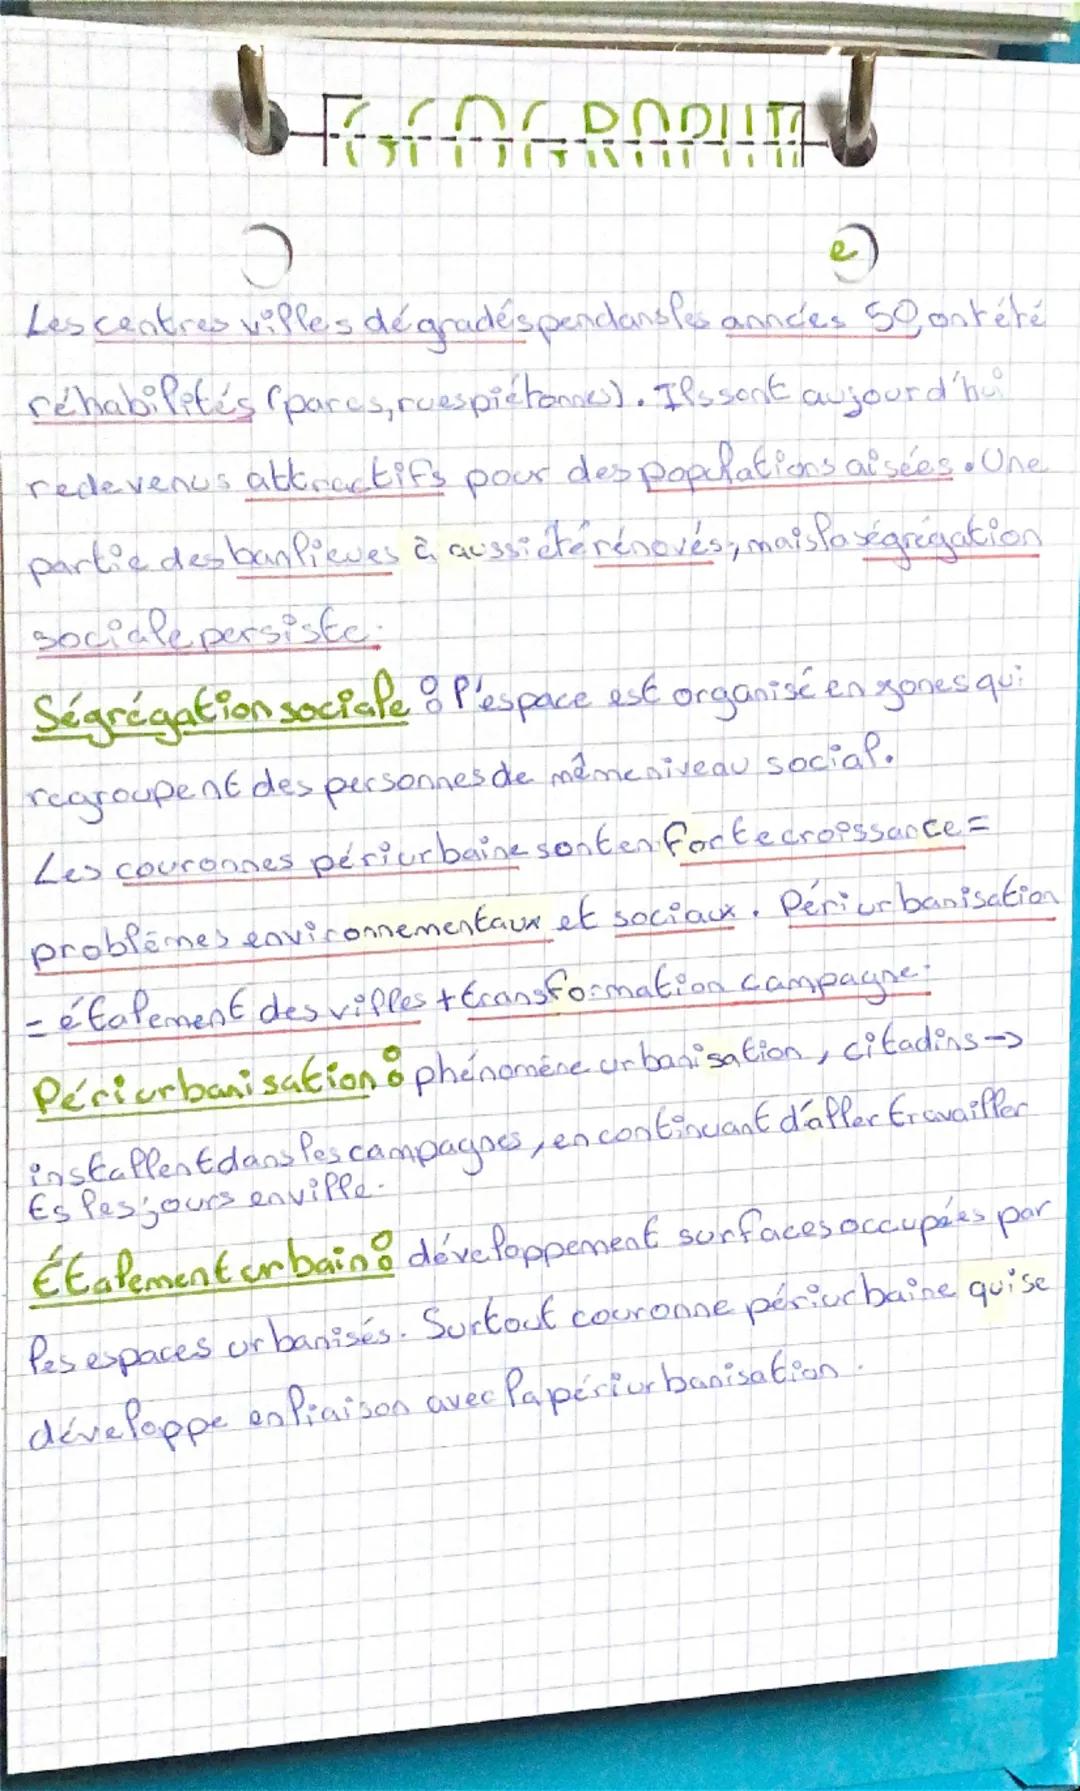 GÉOGRAPHIE
Les centres villes dégradés pendans les années 50, ont été
réhabilités (parcs, rues piétonnes). Ils sont aujourd'hui
redevenus attractifs pour des populations aisées. Une
partie des banlieues à aussi été rénovés, mais la ségrégation
sociale persiste.
Ségrégation sociale : l'espace est organisé en zones qui
regroupent des personnes de même niveau social.
Les couronnes périurbaine sont en forte croissance =
problèmes environnementaux et sociaux. Périurbanisation
= étalement des villes + transformation campagne.
Périurbanisation : phénomène urbanisation, citadins ->
installent dans les campagnes, en continuant d'aller travailler
ts les jours en ville.
Étalement urbain : développement surfaces occupées par
les espaces urbanisés. Surtout couronne périurbaine qui se
développe en liaison avec la périurbanisation.